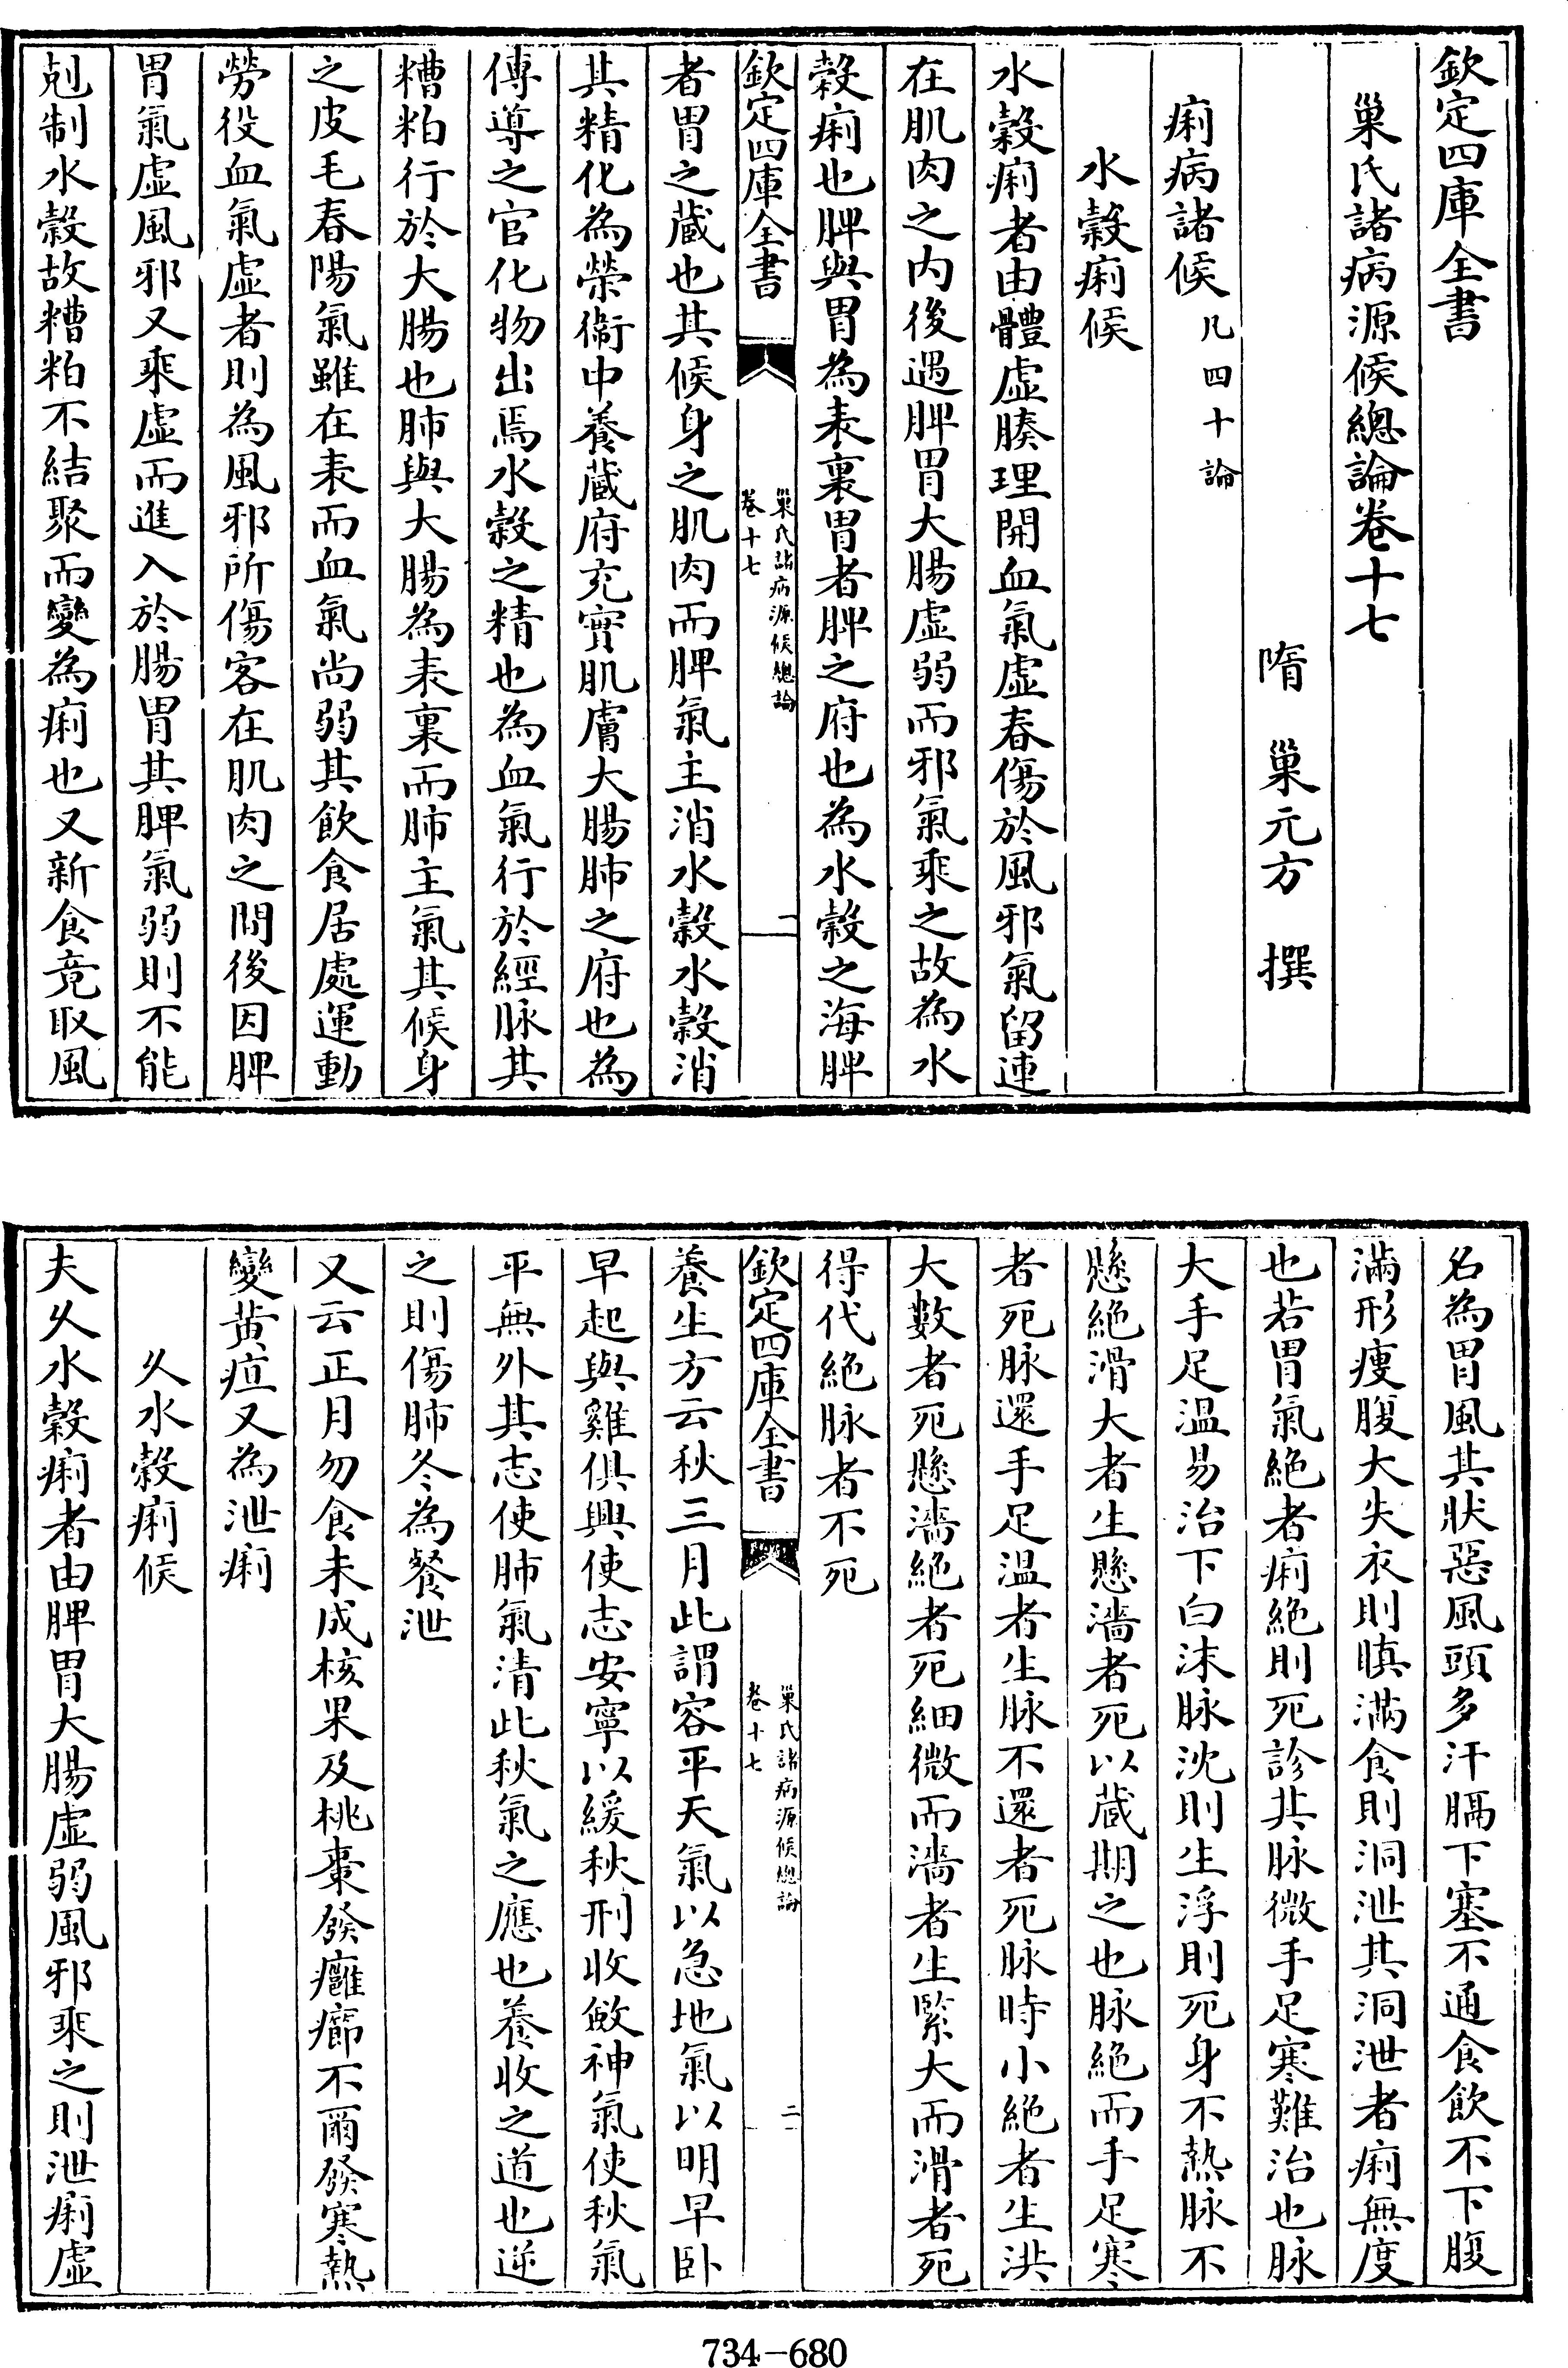 欽定四庫全書
巢氏諸病源候總論卷十七
隋 巢元方 撰
痢病諸候凡四十論
水穀痢候
水穀痢者由體虛腠理開血氣虛春傷於風邪氣留連
在肌肉之内後遇脾胃大腸虛弱而邪氣乘之故為水
穀痢也脾與胃為表裏胃者脾之府也為水穀之海脾
欽定四庫全書
巢氏諸病源候總論
卷十七
一
者胃之藏也其候身之肌肉而脾氣主消水穀水穀消
其精化為榮衞中養藏府充實肌膚大腸肺之府也為
傳導之官化物出焉水穀之精也為血氣行於經脉其
糟粕行於大腸也肺與大腸為表裏而肺主氣其候身
之皮毛春陽氣雖在表而血氣尚弱其飲食居處運動
勞役血氣虛者則為風邪所傷客在肌肉之間後因脾
胃氣虛風邪又乘虛而進入於腸胃其脾氣弱則不能
剋制水穀故糟粕不結聚而變為痢也又新食竟取風
名為胃風其狀惡風頭多汗膈下塞不通食飲不下腹
滿形瘦腹大失衣則䐜滿食則洞泄其洞泄者痢無度
也若胃氣絶者痢絶則死診其脉微手足寒難治也脉
大手足温易治下白沫脉沈則生浮則死身不熱脉不
懸絶滑大者生懸濇者死以藏期之也脉絶而手足寒
者死脉還手足温者生脉不還者死脉時小絶者生洪
大數者死懸濇絶者死細微而濇者生緊大而滑者死
得代絶脉者不死
欽定四庫全書
巢氏諸病源候總論
卷十七
二
養生方云秋三月此謂容平天氣以急地氣以明早卧
早起與雞俱興使志安寧以緩秋刑收斂神氣使秋氣
平無外其志使肺氣清此秋氣之應也養收之道也逆
之則傷肺冬為餐泄
又云正月勿食未成核果及桃棗發癰癤不爾發寒熱
變黃疸又為泄痢
久水穀痢候
夫久水穀痢者由脾胃大腸虛弱風邪乘之則泄痢虛
734-680